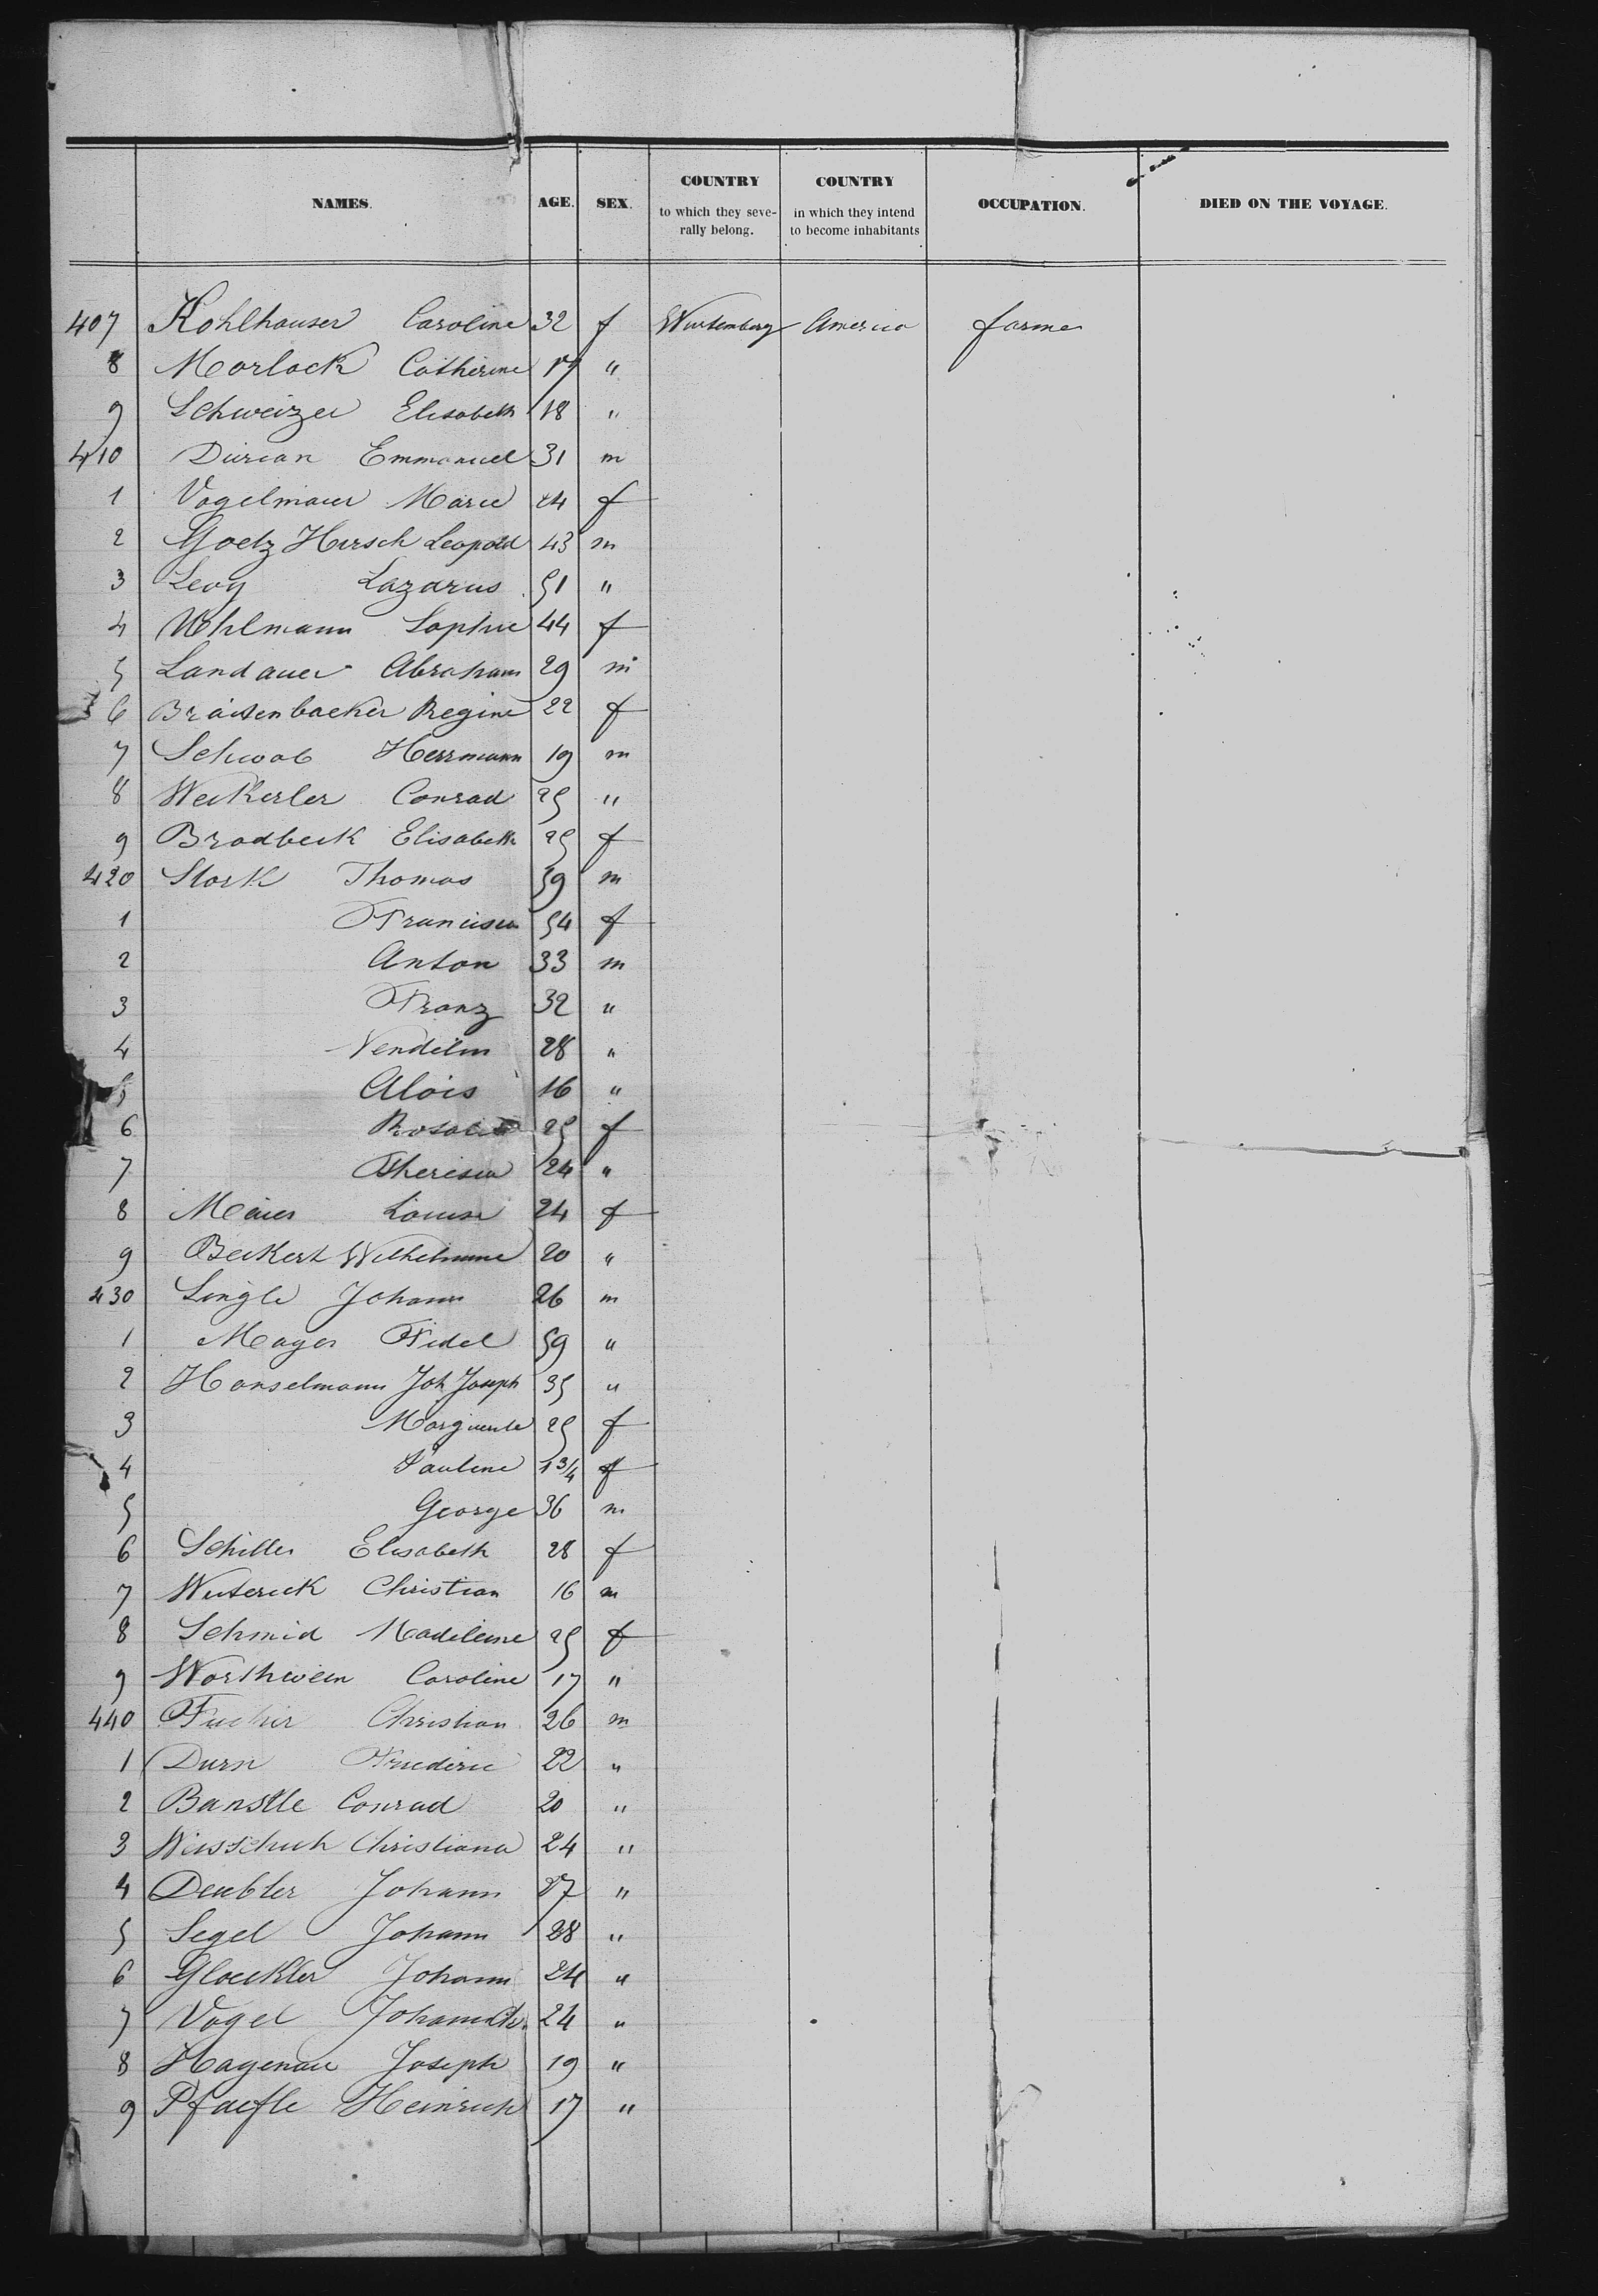 NAMES. AGE. SEX. COUNTRY to which they severally belong. COUNTRY in which they intend to become inhabitants OCCUPATION. DIED ON THE VOYAGE.
407 Kohlhauser Caroline 32 f Wurtemberg America farmer
8 Morlock Catherine 19 "
9 Schweizer Elisabeth 18 "
410 Durian Emmanuel 31 m
1 Vogelmaier Marie 24 f
2 Goetz Hirsch Leopold 43 m
3 Levy Lazarus 51 "
4 Uhlmann Sophie 44 f
5 Landauer Abraham 29 m
6 Braitenbacher Regine 22 f
7 Schwab Herrmann 19 m
8 Weikerler Conrad 25 "
9 Brodbeck Elisabeth 25 f
420 Stork Thomas 59 m
1 Francisca 54 f
2 Anton 33 m
3 Franz 32 "
4 Vendelin 28 "
5 Alois 16 "
6 Rosalie 25 f
7 Theresia 24 "
8 Meier Louise 24 f
9 Beikert Wilhelmine 20 "
430 Single Johann 26 m
1 Mayer Fidel 59 "
2 Hanselmann Joh Joseph 35 "
3 Marguerite 25 f
4 Pauline 1 3/4 f
5 George 36 m
6 Schiller Elisabeth 28 f
7 Wuterick Christian 16 m
8 Schmid Madeleine 25 f
9 Worthwein Caroline 17 "
440 Christian 26 m
1 Durn Friederic 22 "
2 Banstle Conrad 20 "
3 Christiana 24 "
4 Deubler Johann 27 "
5 Segel Johann 28 "
6 Gloeckler Johann 24 "
7 Vogel 24 "
8 Hagenau Joseph 19 "
9 Pfaefle Heinrich 17 "